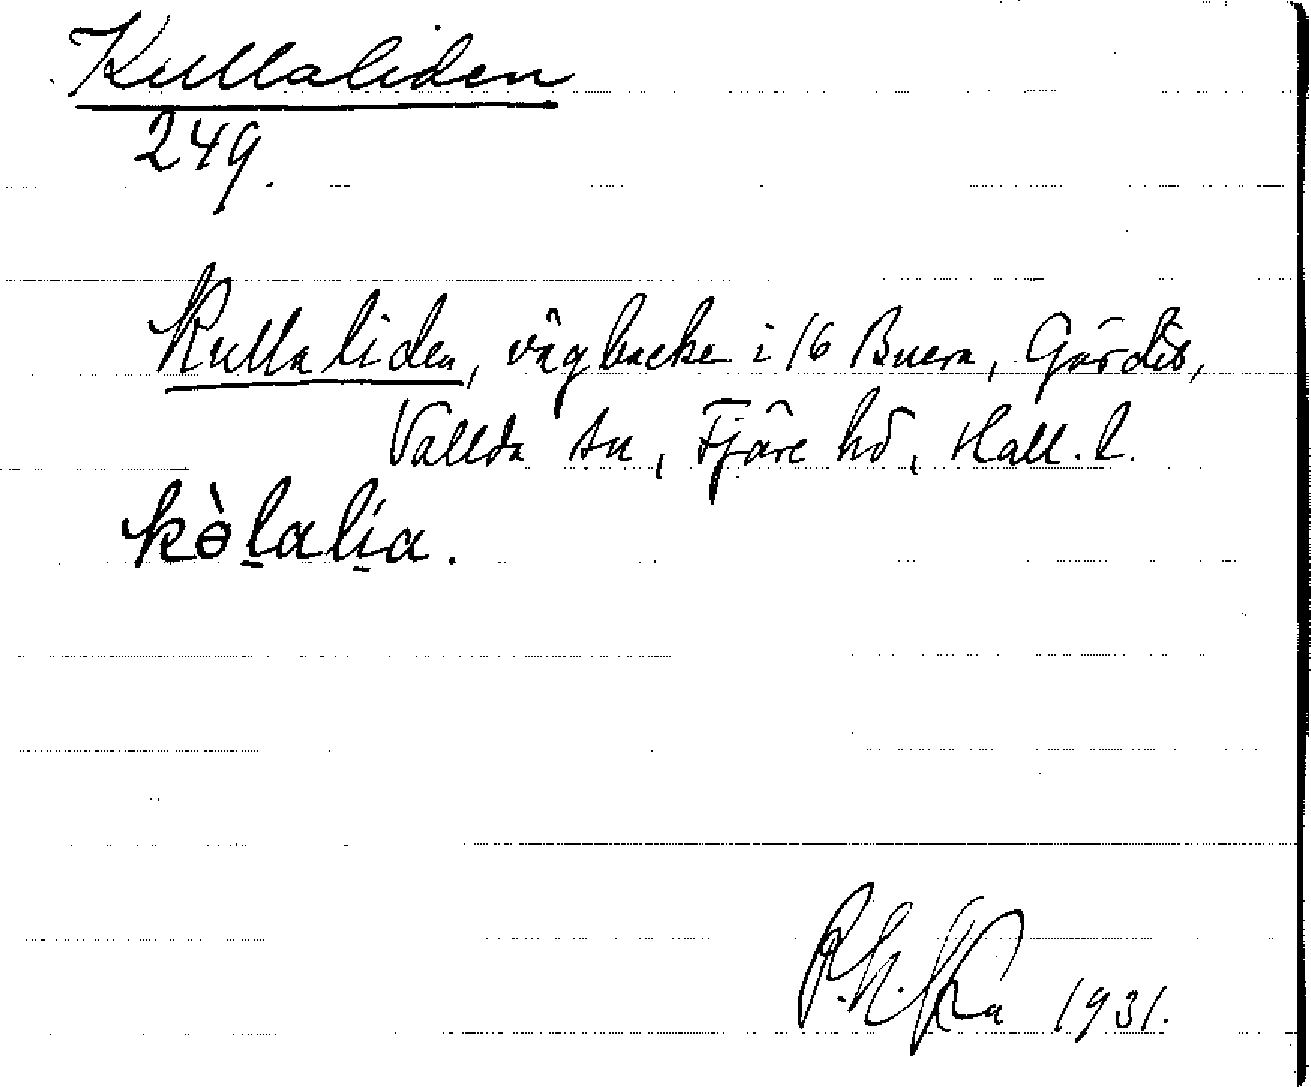 Kullaliden
249.
Kullaliden, vägbacke i 16 Buera, Gårdis,
Vallda sn, Fjäre hd, Hall. l.
kə̀lalia.
1931.